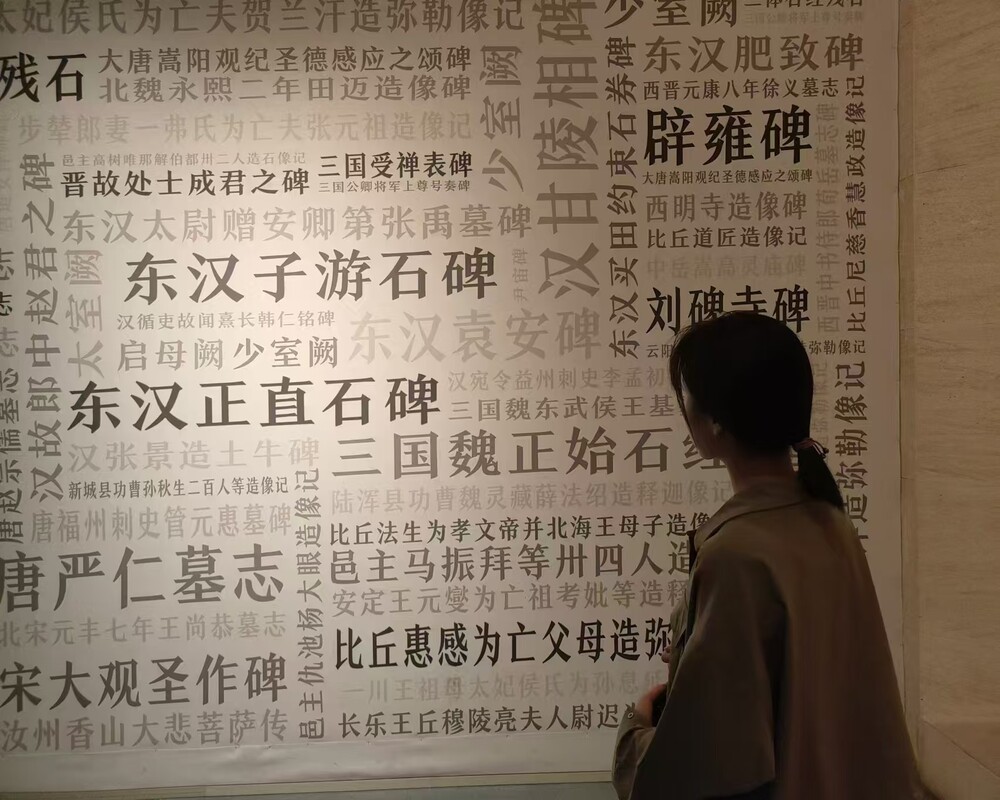 太妃侯氏为亡夫贺兰汗造弥勒像记
少室阙
三国公卿将军上尊号奏
残石
大唐嵩阳观纪圣德感应之颂碑
北魏永熙二年田迈造像碑
步辇郎妻一弗氏为亡夫张元祖造像记
少室阙
汉甘陵相碑
东汉买田约束石券碑
东汉肥致碑
西晋元康八年徐义墓志
辟雍碑
大唐嵩阳观纪圣德感应之颂碑
西明寺造像碑
比丘道匠造像记
中岳嵩高灵庙碑
刘碑寺碑
比丘尼慈香慧政造像记
弥勒像记
邑主高树唯那解伯都卅二人造石像记
晋故处士成君之碑
三国受禅表碑
三国公卿将军上尊号奏碑
东汉太尉赠安卿第张禹墓碑
东汉子游石碑
尹宙碑
汉循吏故闻熹长韩仁铭碑
启母阙少室阙
东汉袁安碑
东汉正直石碑
汉宛令益州刺史李孟初
三国魏东武侯王基
汉张景造土牛碑
三国魏正始石经
汉故郎中赵君之碑
太室阙
唐赵宗儒墓志
新城县功曹孙秋生二百人等造像记
陆浑县功曹魏灵藏薛法绍造释迦像记
唐福州刺史管元惠墓碑
比丘法生为孝文帝并北海王母子造像
唐严仁墓志
邑主马振拜等卅四人造
安定王元燮为亡祖考妣等造释
北宋元丰七年王尚恭墓志
比丘惠感为亡父母造弥
宋大观圣作碑
一川王祖母太妃侯氏为孙息
汝州香山大悲菩萨传
长乐王丘穆陵亮夫人尉迟为
邑主仇池杨大眼造像记
造弥勒像记